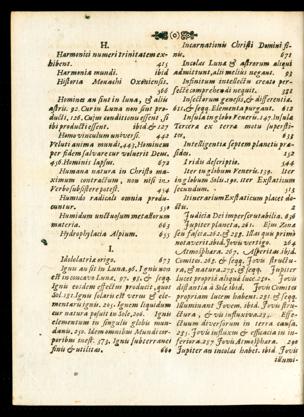 H.
Harmonici numeri trinitatem ex-
hibent. 415
Harmonia mundi. ibid
Historia Monachi Oxoniensis.
366
Homines an sint in luna, & aliis
astris. 92. Cur in Luna non sint pro-
ducti, 126. Cujus conditionis essent, si
ibi producti essent. ibid & 127
Homo vinculum universi. 442
Veluti anima mundi, 443. Hominem
per fidem salvare cur voluerit Deus.
456. Hominis lapsus. 672
Humana natura in Christo ma-
ximum contractum, non nisi in
Verbo subsistere potest. 454
Humido radicali omnia produ-
cuntur. 350
Humidum unctuosum metallorum
materia. 663
Hydrophylacia Alpium. 655
I.
Idololatriæ origo. 673
Ignis an sit in Luna. 96. Ignis non
est in concavo Lunæ, 97. 95. & seqq
Ignis eosdem effectus producit, quos
Sol. 181. Ignis solaris est verus & ele-
mentarius ignis. 205. Ignem liquidum
cur natura posuit in Sole, 206. Ignis
elementum in singulis globis mun-
danis, 250. Idem omnibus Mundi cor-
poribus inest. 373. Ignis subterranei
finis & utilitas. 660
Incarnationis Christi Domini fi-
nis. 671
Incolas Lunæ & astrorum aliqui
admittunt, alii melius negant. 93
Infinitum intellectu creato per-
fectè comprehendi nequit. 381
Insectorum genesis, & differentia.
611. & seqq. Elementa purgant. 612
Insula in globo Veneris. 147. Insula
Tercera ex serra motu supersti-
tes. 638
Intelligentia septem planetis præ-
sides. 252
Iridis descriptio. 546
Iter in globum Veneris. 139. Iter
in globum Solis. 190. iter Exstaticum
secundum. 513
Itinerarium Exstaticum placet do-
ctis. 2
Judicia Dei imperscrutabilia. 636
Jupiter planeta, 261. Ejus Zonæ
seu fasciæ. 262. & 258. Illas quis primò
notaverit. ibid. Jovis vertigo. 264
Atmosphæra. 267. Asperitas. ibid.
Comites. 263. & seqq. Jovis structu-
ra, & natura. 275. & seqq. Jupiter
lucet propriâ aliquâ luce. 250. Jovis
distantia à Sole ibid. Jovis Comites
propriam lucem habent. 281. & seqq.
illuminant Jovem. ibid. Jovis stru-
ctura, & vis influxiva. 283. Effe-
ctuum diversorum in terra causa.
285. Jovis influxus & efficacia in in-
feriora. 287. Jovis Atmosphæra. 290
Jupiter an incolas habet. ibid. Jovis
illumi-